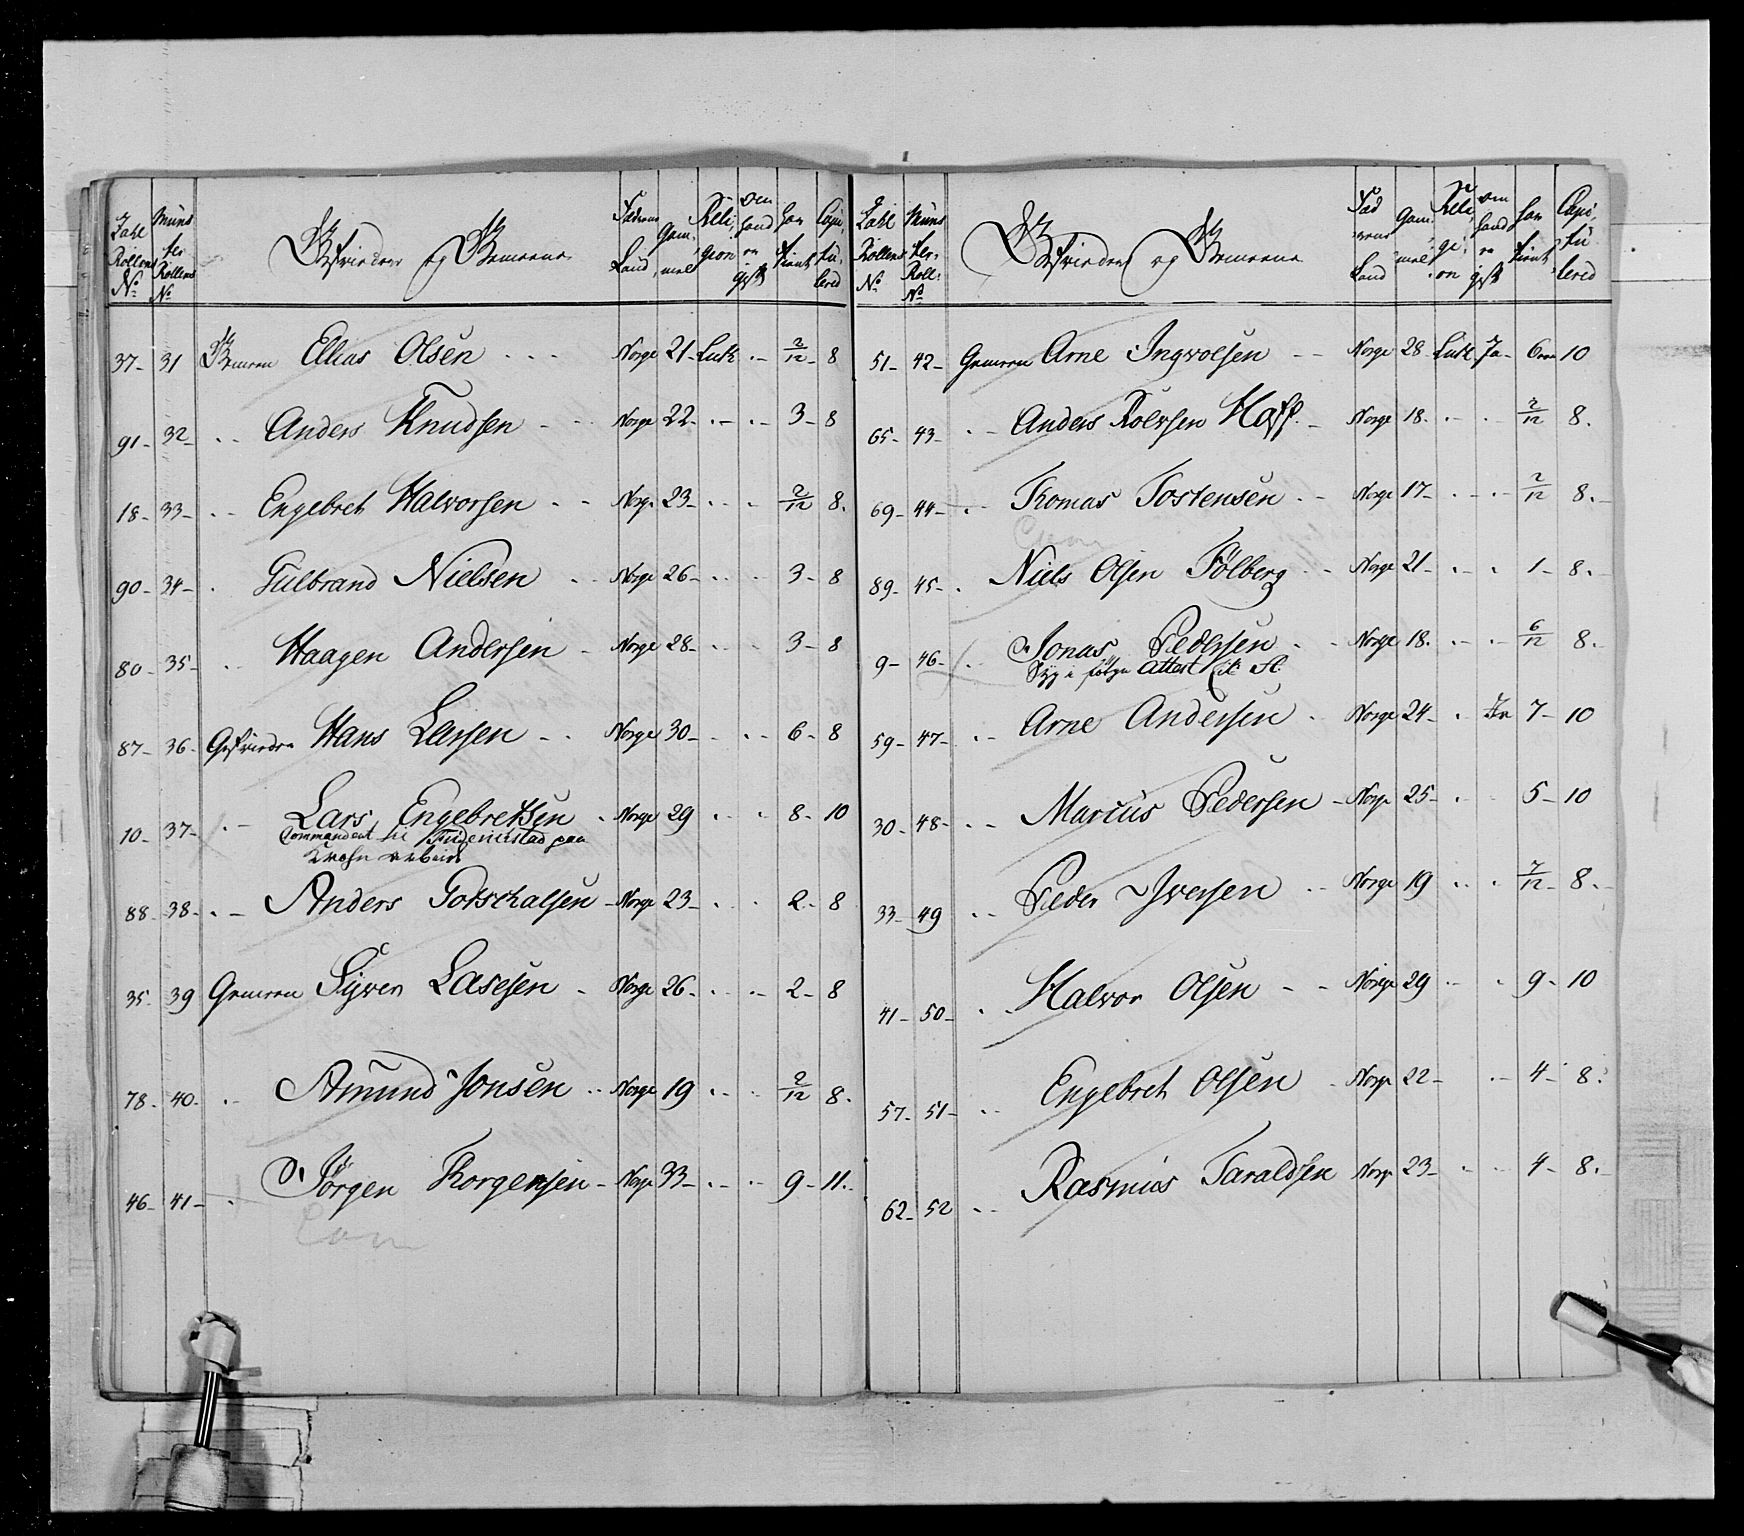 Zahl Rollens No | Münster Rollens No | Gefrieder og Gemeene | Fæderne Land | Gammel | Religion | om hand er gift | har tient | Capitulered
37 - 31 Gemeen Ellias Olsen - - - Norge 21 - Luth - 2/12 - 8
91 - 32 - Anders Knudsen - - - Norge 22 - - - 3 - 8
18 - 33 - Engebret Halvorsen - - Norge 23 - - - 2/12 8.
90 - 34 - Gulbrand Nielsen - - Norge 26 - - - 3 - 8
80 - 35 - Haagen Andersen - Norge 28 - - - 3 - 8
87 - 36 - Gefrieder Hans Larsen - - Norge 30 - - - 6 - 8
10 - 37 - Lars Engebretsen - Norge 29 - - 8 - 10
Commandert til Friderichstad paa
arbeide
88 - 38 - Anders Gotschalsen - Norge 23 - - - 2 - 8
35 - 39 Gemeen Syver Lassesen - Norge 26 - - - 2 - 8
78 - 40 - Amund Jonsen - - Norge 19 - - 2/12 8.
46 - 41 - Jörgen Torgersen - Norge 33 - - - 9 - 11.
Com
Zahl Rollens No | Münster Rolls No | Gefrieder og Gemeene | Fæderne Land | Gammel | Religion | om hand er gift | har tient | Capitulered
51 - 42 - Gemeen Arne Ingvolsen - - Norge 28 Luth Ja - 6 - 10
65 - 43 - Anders Rolvsen Hoff - Norge 18. - - 2/12 8.
69 - 44 - Thomas Tostensen - - Norge 17 - - - 2/12 8.
Com
89 - 45 - Niels Olsen Fölberg - - Norge 21 - - - 1 - 8.
9 - 46 - Jonas Pedersen - - Norge 18. - - 6/12 8.
Syg i følge Attest
59 - 47 - Arne Andersen - Norge 24 - - Ja 7 - 10
30 - 48 - Marcus Pedersen - Norge 25 - - 5 - 10
33 - 49 - Peder Iversen - - Norge 19 - - 7/12 - 8.
41 - 50 - Halvor Olsen - - Norge 29 - - 9 - 10
57 - 51 - Engebret Olsen - Norge 22 - - 4 - 8.
62 - 52 - Rasmus Taraldsen Norge 23 - - - 4 - 8.